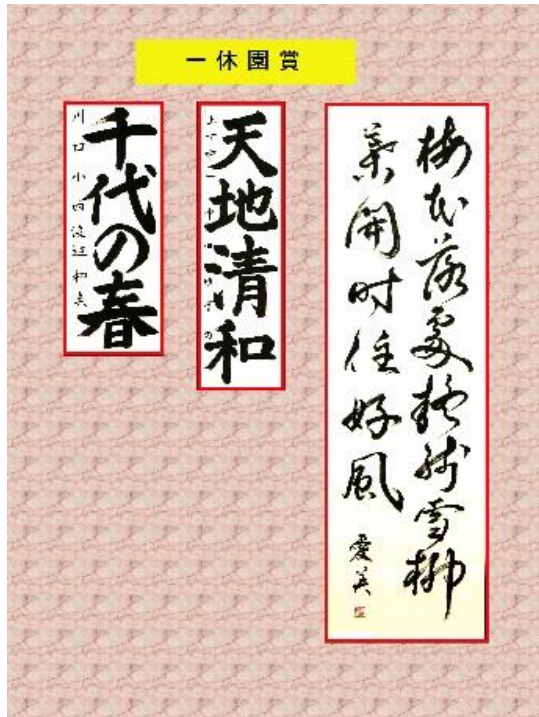 一休園賞
梅花落處疑残雪柳
葉開时任好風
愛美
天地清和
千代の春
川口小四渡辺和